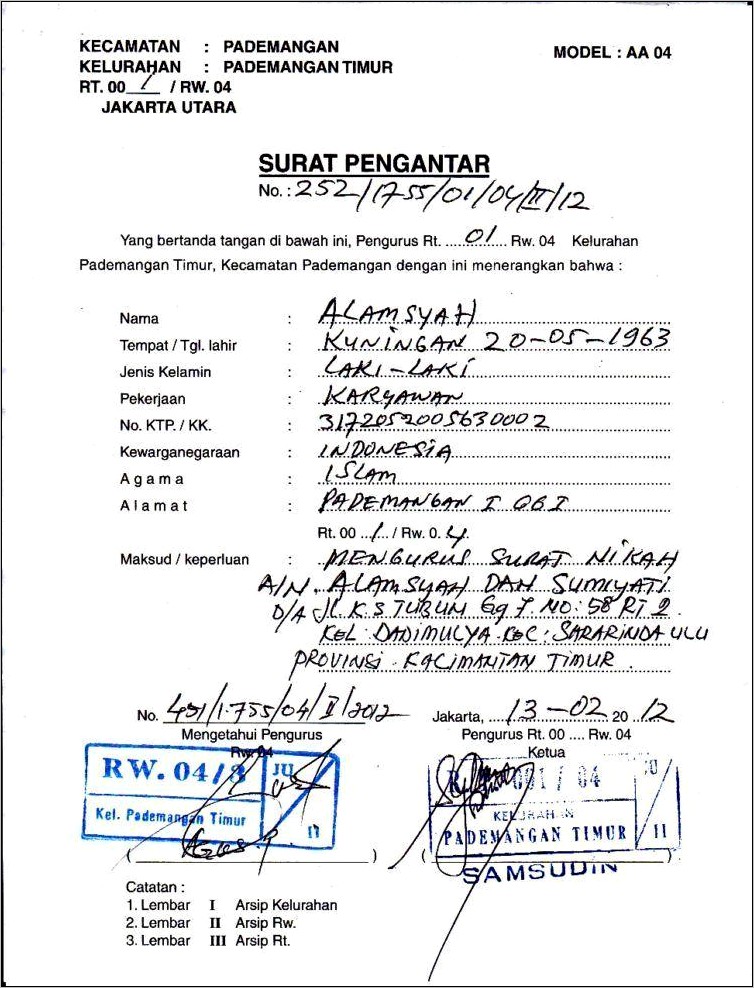 KECAMATAN : PADEMANGAN
MODEL : AA 04
KELURAHAN : PADEMANGAN TIMUR
RT. 00 1 / RW. 04
JAKARTA UTARA
SURAT PENGANTAR
No. : 252/1755/01/04/II/12
Yang bertanda tangan di bawah ini, Pengurus Rt. 01 Rw. 04 Kelurahan
Pademangan Timur, Kecamatan Pademangan dengan ini menerangkan bahwa :
Nama : ALAMSYAH
Tempat / Tgl. lahir : KUNINGAN 20-05-1963
Jenis Kelamin : LAKI-LAKI
Pekerjaan : KARYAWAN
No. KTP. / KK. : 3172052005630002
Kewarganegaraan : INDONESIA
Agama : ISLAM
Alamat : PADEMANGAN I GG I
Rt. 00 1 / Rw. 0.4.
Maksud / keperluan : MENGURUS SURAT NIKAH
A/N. ALAMSYAH DAN SUMIYATI
D/A Jl. K.S TUBUN Gg 7. NO: 58 RT 2.
KEL: DADIMULYA KEC: SARARINDA ULU
PROVINSI KALIMANTAN TIMUR.
No. 451/1.755/04/II/2012
Jakarta, 13-02 20 12
Mengetahui Pengurus
Rw. 04
Pengurus Rt. 00 .... Rw. 04
Ketua
RW. 04/3
JU
Kel. Pademangan Timur
11
001 / 04
KELURAHAN
PADEMANGAN TIMUR
11
( )
( )
SAMSUDIN
Catatan :
1. Lembar I Arsip Kelurahan
2. Lembar II Arsip Rw.
3. Lembar III Arsip Rt.